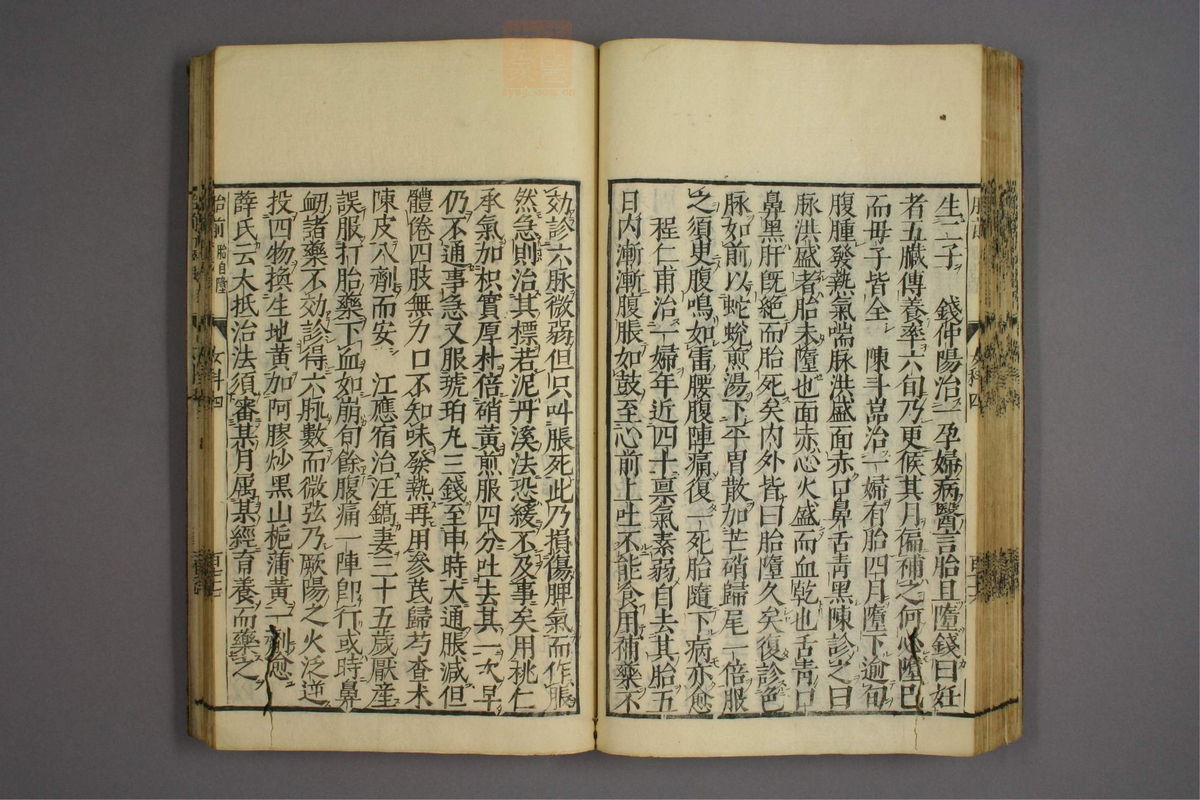 生二子　錢仲陽治一孕婦病醫言胎且墮錢曰妊
者五臟傳養率六旬乃更候其月偏補之何必墮已
而母子皆全　陳斗嵓治一婦有胎四月墮下逾旬
腹腫發熱氣喘脉洪盛面赤口鼻舌青黑陳診之曰
脉洪盛者胎未墮也面赤心火盛而血乾也舌青口
鼻黑肝旣絕而胎死矣內外皆曰胎墮久矣復診色
脉如前以蛇蛻煎湯下平胃散加芒硝歸尾一倍服
之須臾腹鳴如雷腰腹陣痛復一死胎隨下病亦愈
程仁甫治一婦年近四十禀氣素弱自去其胎五
日內漸漸腹脹如鼓至心前上吐不能食用補藥不
効診六脉微弱但只叫脹死此乃損傷脾氣而作脹
然急則治其標若泥丹溪法恐緩不及事矣用桃仁
承氣加枳實厚朴倍硝黃煎服四分吐去其一次早
仍不通事急又服琥珀丸三錢至申時大通脹減但
體倦四肢無力口不知味發熱再用參芪歸芍查术
陳皮八劑而安　江應宿治汪鎬妻三十五歲厭産
誤服打胎藥下血如崩旬餘腹痛一陣卽行或時鼻
衄諸藥不効診得六脉數而微弦乃厥陽之火泛逆
投四物換生地黃加阿膠炒黑山梔蒲黃一劑愈
薛氏云大抵治法須審某月属某經育養而藥之
胎前 胎自墮 女科四 百七十七